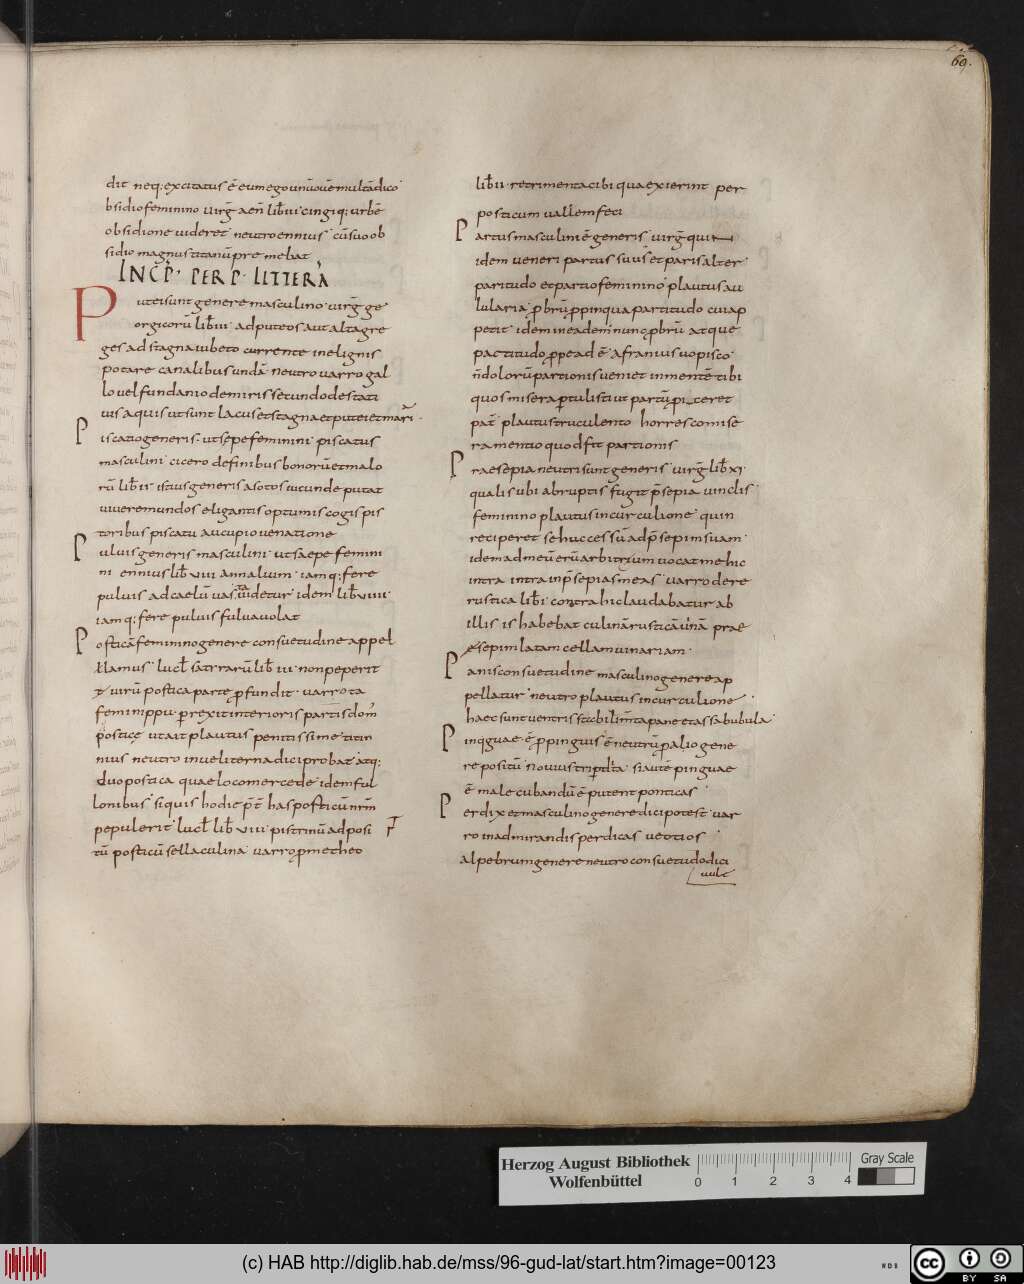 60.
dit neq; excitatus ē eumego unūouē multādico
bsidio feminino virḡ aen̄ lib̄ iii cingiq; urbē
obsidione videret neutro ennius cūsuo ob
sidio magnus titanūpremebat
INCP̄ PER P LITTERA
Putei sunt genere masculino virḡ ge
orgicorū lib̄ iii ad puteos aut alta gre
ges ad stagna iubeto currente in elignis
potare canalibus undā neutro varro gal
lo vel fundanio de miris secundo de stati
vis aquis ut sunt lacus et stagna et putei et mari
Piscatio generis ut sepe feminini piscatus
masculini cicero definibus bonorū et malo
rū lib̄ ii istius generis asotos iucunde putat
vivere mundos eligantis optumis cogis pis
toribus piscatu aucupio venatione
Pulvis generis masculini ut saepe femini
ni ennius lib̄ viii annalium iamq; fere
pulvis ad caelū vasta videtur idem lib̄ viiii
iamq; fere pulvis fulva volat
Posticā feminino genere consuetudine appel
llamus lucł satirarū lib̄ iii non peperit
virū postica parte profundit varro ta
feminippu perexit interioris partis dom̄
posticę ut ait plautus penitissime titin
nius neutro in veliterna dici probat atq;
duo postica quae loco mercede idem ful
lonibus siquis hodie p̄t̄ has posticū nr̄m
pepulerit lucł lib̄ viiii pistrinū adposi
tū posticū sella culina varro prometheo
lib̄ ii retrimenta cibi qua exierint per
posticum vallem feci
Partus masculini ē generis virḡ qui
idem veneri partus suus et paris alter
paritudo et partio feminino plautus au
lularia probrū propinqua partitudo cui ap
petit idem in eadem nunc probrū atque
pactitudo prope ad ē afranius vopisco
n̄ dolorū partionis veniet in mentē tibi
quos misera pertulisti ut partū piceret
pat̄ plautus truculento horresco mise
ra mentio quod fit partionis
Praesepia neutri sunt generis virḡ lib̄ xi
qualis ubi abruptis fugit p̄sepia vinclis
feminino plautus in curculione quin
reciperet se huc cessū ad p̄sepim suam
idem ad meū erū arbitrium vocat me hic
intra intra in p̄sepias meas varro de re
rustica lib̄ i contra hi claudabatur ab
illis is habebat culinā rusticā unā prae
sepim latam cellam vinariam
Panis consuetudine masculino genere ap
pellatur neutro plautus in curculione
haec sunt ventris stabilim̄ta pane et assa bubula
Pinqguae ē pro pinguis ē neutrū pro alio gene
re positū
ē male cubandū ē putent ponticas
Perdix et masculino genere dici potest var
ro in admirandis perdicas veotios
alpebrum genere neutro consuetudo dici
vult
Herzog August Bibliothek
Wolfenbüttel
0 1 2 3 4
Gray Scale
(c) HAB http://diglib.hab.de/mss/96-gud-lat/start.htm?image=00123
cc BY SA